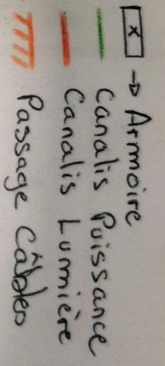 x → Armoire
Canalis Puissance
Canalis Lumière
Passage Câbles